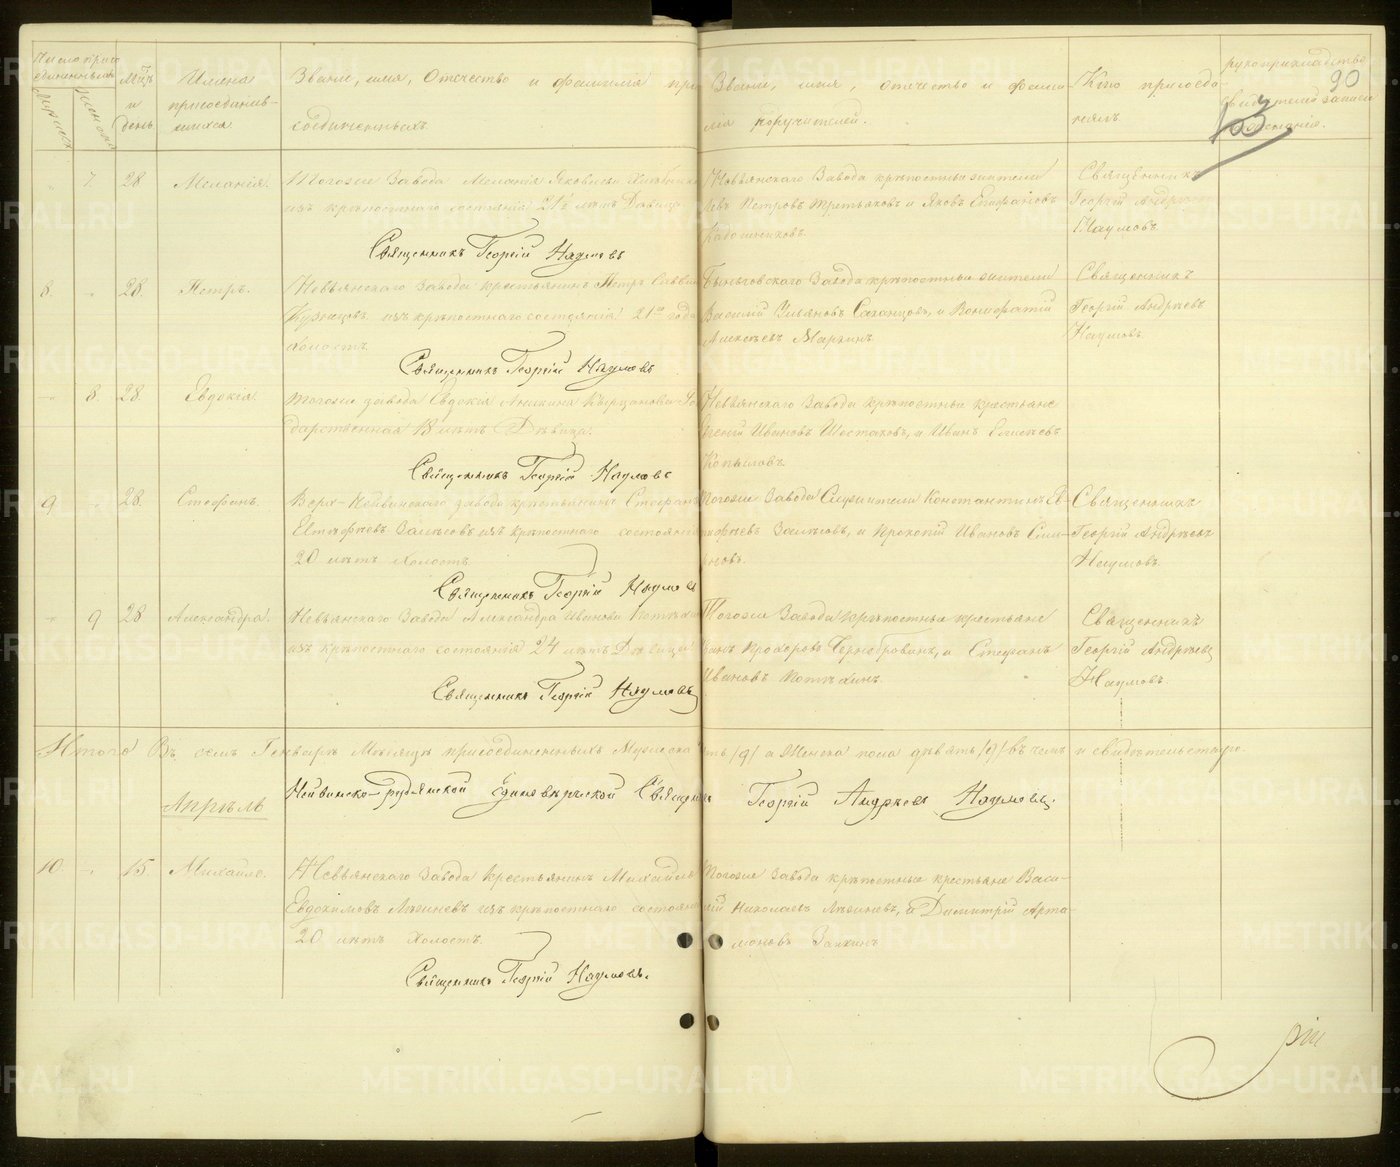 Число присо
единенныхъ
Мужска
Женска
Мѣц.
и
день
Имена
присоединив-
шихся
Званіе, имя, Отечество и фамилія при
соединенныхъ.
Званіе, имя, отечество и фами
лія поручителей.
Кто присоеди-
нялъ
рукоприкладство
свидѣтелей записи
90
103
7. 28 Меланія. Тогоже завода Меланія Яковлева
изъ крѣпостнаго состоянія 21½ лѣтъ Дѣвица.
Священникъ Георгій Наумовъ
Невьянскаго Завода крѣпостные жители
Петровъ Третьяковъ и Яковъ Епифановъ
Священникъ
Георгій Андреевъ
Наумовъ.
8. 28. Петръ. Невьянскаго Завода крестьянинъ Петръ Саввинъ
Кузнецовъ изъ крѣпостнаго состоянія 21го года
холостъ.
Священникъ Георгій Наумовъ
Быньговскаго Завода крѣпостные жители
Василій Ульяновъ Саганцовъ, и Вонифатій
Алексѣевъ Маркинъ
Священникъ
Георгій Андреевъ
Наумовъ.
8. 28. Евдокія. Тогоже завода Евдокія Аникина Го
дарственная 18 лѣтъ Дѣвица.
Священникъ Георгій Наумовъ
Невьянскаго Завода крѣпостные крестьяне
Ивановъ Шестаковъ, и Иванъ Елисѣевъ
Копыловъ.
9 28 Стефанъ Верх-Нейвинскаго завода крестьянинъ Стефанъ
Евтифѣевъ Залѣсовъ изъ крѣпостнаго состоянія
20 лѣтъ Холостъ
Священникъ Георгій Наумовъ
Тогоже Завода Служители Константинъ Ев-
тифѣевъ Залѣсовъ, и Прокопій Ивановъ Сми-
рновъ.
Священникъ
Георгій Андреевъ
Наумовъ.
9 28 Александра. Невьянскаго Завода Александра Иванова Потѣхина
изъ крѣпостнаго состоянія 24 лѣтъ Дѣвица.
Священникъ Георгій Наумовъ
Тогоже Завода крѣпостные крестьяне
Прохоровъ Чернобровинъ, и Стефанъ
Ивановъ Потѣхинъ
Священникъ
Георгій Андреевъ
Наумовъ.
Итого Въ семъ Генварѣ Мѣсяцѣ присоединенныхъ Мужеска
ть /9/ а Женска пола дѣвять /9/ въ чемъ и свидѣтельствую.
Нейвинско-рудянской Единовѣрческой Священникъ Георгій Андреевъ Наумовъ.
Апрѣль
10. 15. Михаилъ. Невьянскаго Завода Крестьянинъ Михаилъ
Евдокимовъ изъ крѣпостнаго состоянія
20 лѣтъ Холостъ.
Священникъ Георгій Наумовъ.
Тогоже Завода крѣпостные крестьяне Васи-
лій Николаевъ, и Димитрій Арта-
моновъ Заикинъ
METRIKI.GASO-URAL.RU